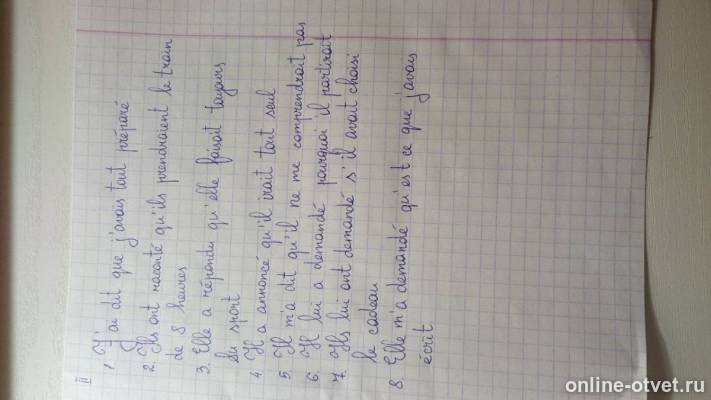 II
1. J'ai dit que j'avais tout préparé
2. Ils ont raconté qu'ils prendraient le train
de 8 heures
3. Elle a répondu qu'elle faisait toujours
du sport
4 Il a annoncé qu'il irait tout seul
5. Il m'a dit qu'il ne me comprendrait pas
6. Il lui a demandé pourquoi il partirait
7. Ils lui ont demandé s'il avait choisi
le cadeau
8. Elle m'a demandé qu'est ce que j'avais
écrit
online-otvet.ru